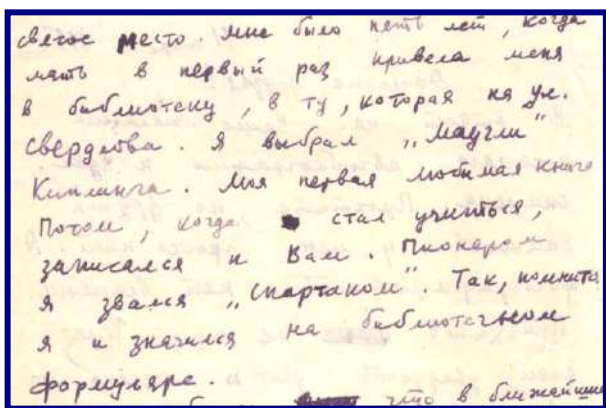 святое место. Мне было пять лет, когда
мать в первый раз привела меня
в библиотеку, в ту, которая на ул.
Свердлова. Я выбрал „Маугли"
Киплинга. Моя первая любимая книга
Потом, когда стал учиться,
записался к Вам. Пионером
я звался „Спартаком". Так, помнится
я и значился на библиотечном
формуляре.
что в ближайшие